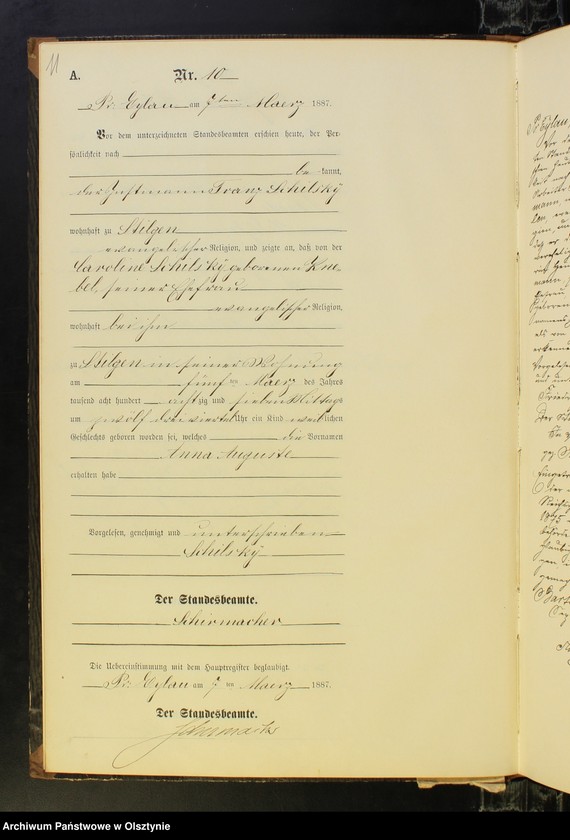 11
A.
Nr. 10
Pr. Eylau am 7ten Maerz 1887.
Vor dem unterzeichneten Standesbeamten erschien heute, der Per-
sönlichkeit nach
be kannt,
der Instmann Franz Schilsky
wohnhaft zu Stilgen
evangelischer Religion, und zeigte an, daß von der
Caroline Schilsky geborenen Kne-
bel, seiner Ehefrau
evangelischer Religion,
wohnhaft bei ihm
zu Stilgen in seiner Wohnung
am fünften Maerz des Jahres
tausend acht hundert achtzig und sieben Mittags
um zwölf drei viertel Uhr ein Kind weiblichen
Geschlechts geboren worden sei, welches die Vornamen
Anna Auguste
erhalten habe
Vorgelesen, genehmigt und unterschrieben
Schilsky
Der Standesbeamte.
Schirmacher
Die Uebereinstimmung mit dem Hauptregister beglaubigt.
Pr. Eylau am 7ten Maerz 1887.
Der Standesbeamte.
Schirmacher
Pr Eylau
Archiwum Państwowe w Olsztynie